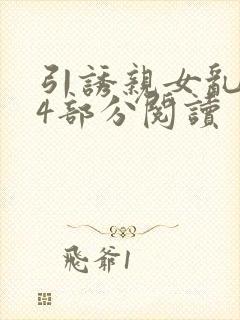 引誘親女亂
4部分閱讀
飛爺1